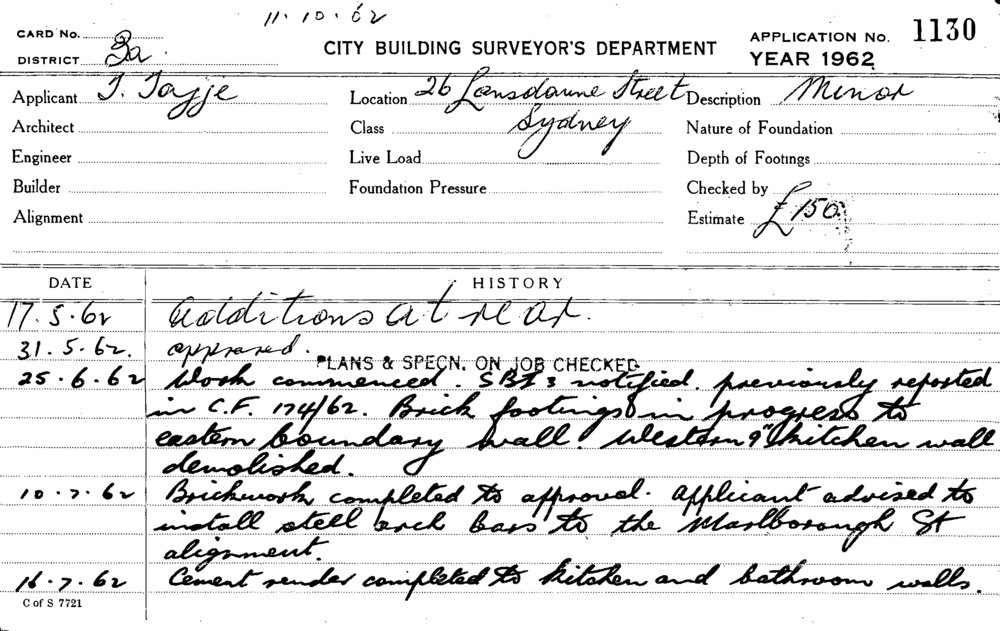 11.10.62
CARD No.
DISTRICT 3a.
CITY BUILDING SURVEYOR'S DEPARTMENT
APPLICATION No. 1130
YEAR 1962
Applicant T. Tajje
Location 26 Lansdowne Street
Description Minor
Architect
Class Sydney
Nature of Foundation
Engineer
Live Load
Depth of Footings
Builder
Foundation Pressure
Checked by
Alignment
Estimate £150
DATE HISTORY
17.5.62 additions at rear.
31.5.62. approved.
PLANS & SPECN. ON JOB CHECKED
25.6.62 Work commenced. notified. previously reported
in C.F. 174/62. Brick footings in progress to
eastern boundary wall. Western 9" kitchen wall
demolished.
10.7.62 Brickwork completed to approval. Applicant advised to
install steel arch bars to the Marlborough St
alignment.
16.7.62 Cement render completed to kitchen and bathroom walls.
C of S 7721